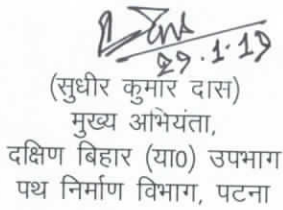 29.1.19
(सुधीर कुमार दास)
मुख्य अभियंता,
दक्षिण बिहार (या0) उपभाग
पथ निर्माण विभाग, पटना